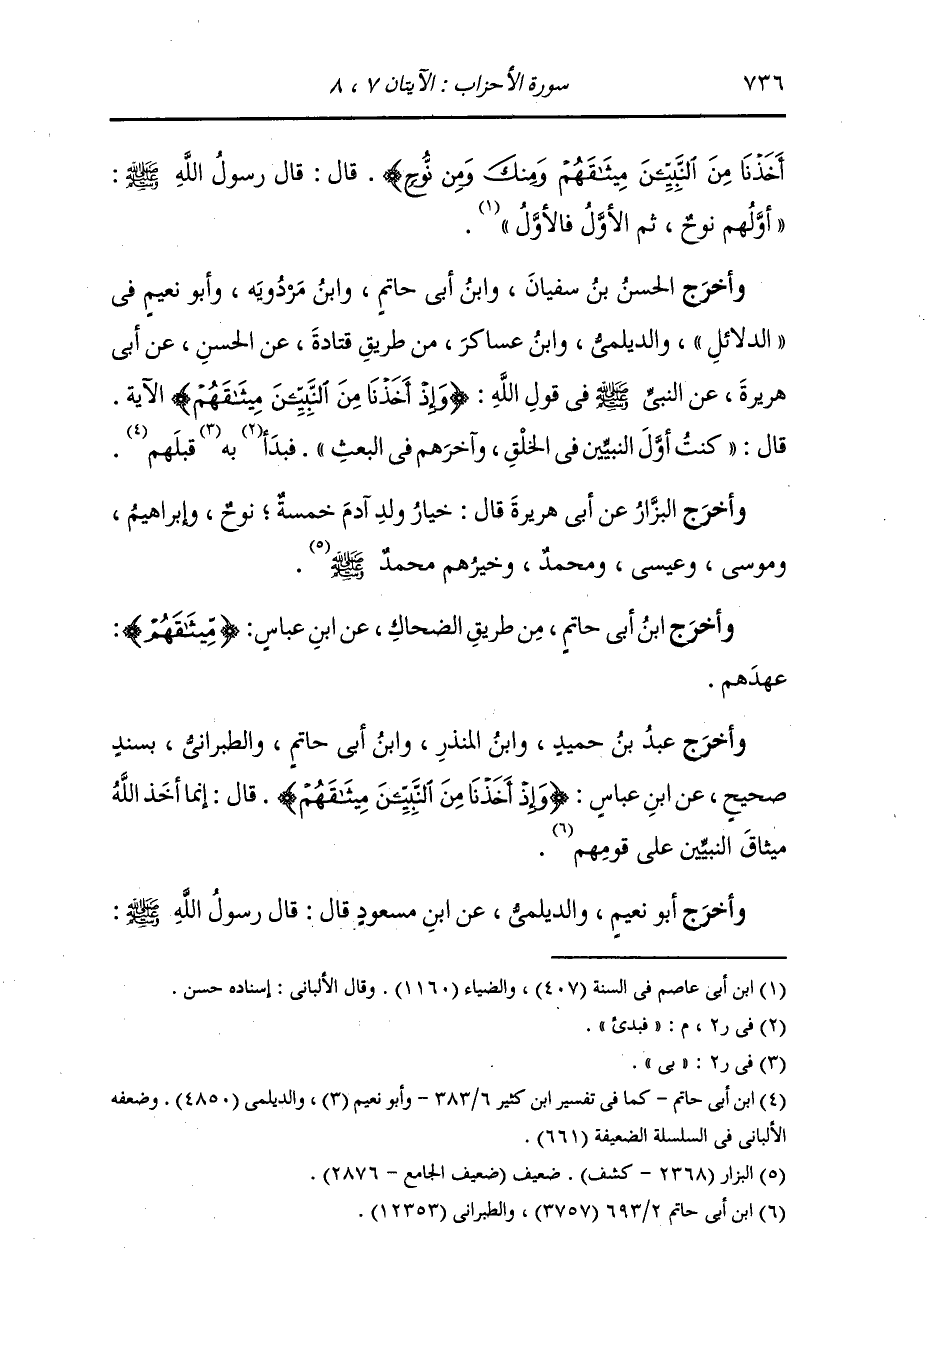 ٧٣٦ سورة الأحزاب : الآيتان ٧ ، ٨
أَخَذْنَا مِنَ ٱلنَّبِيِّـۧنَ مِيثَٰقَهُمْ وَمِنكَ وَمِن نُّوحٍ﴾ . قال : قال رسولُ اللَّهِ ﷺ :
« أوَّلُهم نوحٌ ، ثم الأوَّلُ فالأوَّلُ »(١) .
وأخرَج الحسنُ بنُ سفيانَ ، وابنُ أبى حاتمٍ ، وابنُ مَرْدُويَه ، وأبو نعيمٍ فى
« الدلائلِ » ، والديلمىُّ ، وابنُ عساكرَ ، من طريقِ قتادةَ ، عن الحسنِ ، عن أبى
هريرةَ ، عن النبىِّ ﷺ فى قولِ اللَّهِ : ﴿وَإِذْ أَخَذْنَا مِنَ ٱلنَّبِيِّـۧنَ مِيثَٰقَهُمْ﴾ الآية .
قال : « كنتُ أوَّلَ النبيِّين فى الخلْقِ ، وآخرَهم فى البعثِ » . فبدَأ(٢) به(٣) قبلَهم(٤) .
وأخرَج البزَّارُ عن أبى هريرةَ قال : خيارُ ولدِ آدمَ خمسةٌ ؛ نوحٌ ، وإبراهيمُ ،
وموسى ، وعيسى ، ومحمدٌ ، وخيرُهم محمدٌ ﷺ(٥) .
وأخرَج ابنُ أبى حاتمٍ ، مِن طريقِ الضحاكِ ، عن ابنِ عباسٍ : ﴿مِّيثَٰقَهُمْ﴾ :
عهدَهم .
وأخرَج عبدُ بنُ حميدٍ ، وابنُ المنذرِ ، وابنُ أبى حاتمٍ ، والطبرانىُّ ، بسندٍ
صحيحٍ ، عن ابنِ عباسٍ : ﴿وَإِذْ أَخَذْنَا مِنَ ٱلنَّبِيِّـۧنَ مِيثَٰقَهُمْ﴾ . قال : إنما أخَذ اللَّهُ
ميثاقَ النبيِّين على قومِهم(٦) .
وأخرَج أبو نعيمٍ ، والديلمىُّ ، عن ابنِ مسعودٍ قال : قال رسولُ اللَّهِ ﷺ :
(١) ابن أبى عاصم فى السنة (٤٠٧) ، والضياء (١١٦٠) . وقال الألبانى : إسناده حسن .
(٢) فى ر٢ ، م : « فبدئ » .
(٣) فى ر٢ : « بى » .
(٤) ابن أبى حاتم - كما فى تفسير ابن كثير ٣٨٣/٦ - وأبو نعيم (٣) ، والديلمى (٤٨٥٠) . وضعفه
الألبانى فى السلسلة الضعيفة (٦٦١) .
(٥) البزار (٢٣٦٨ - كشف) . ضعيف (ضعيف الجامع - ٢٨٧٦) .
(٦) ابن أبى حاتم ٦٩٣/٢ (٣٧٥٧) ، والطبرانى (١٢٣٥٣) .